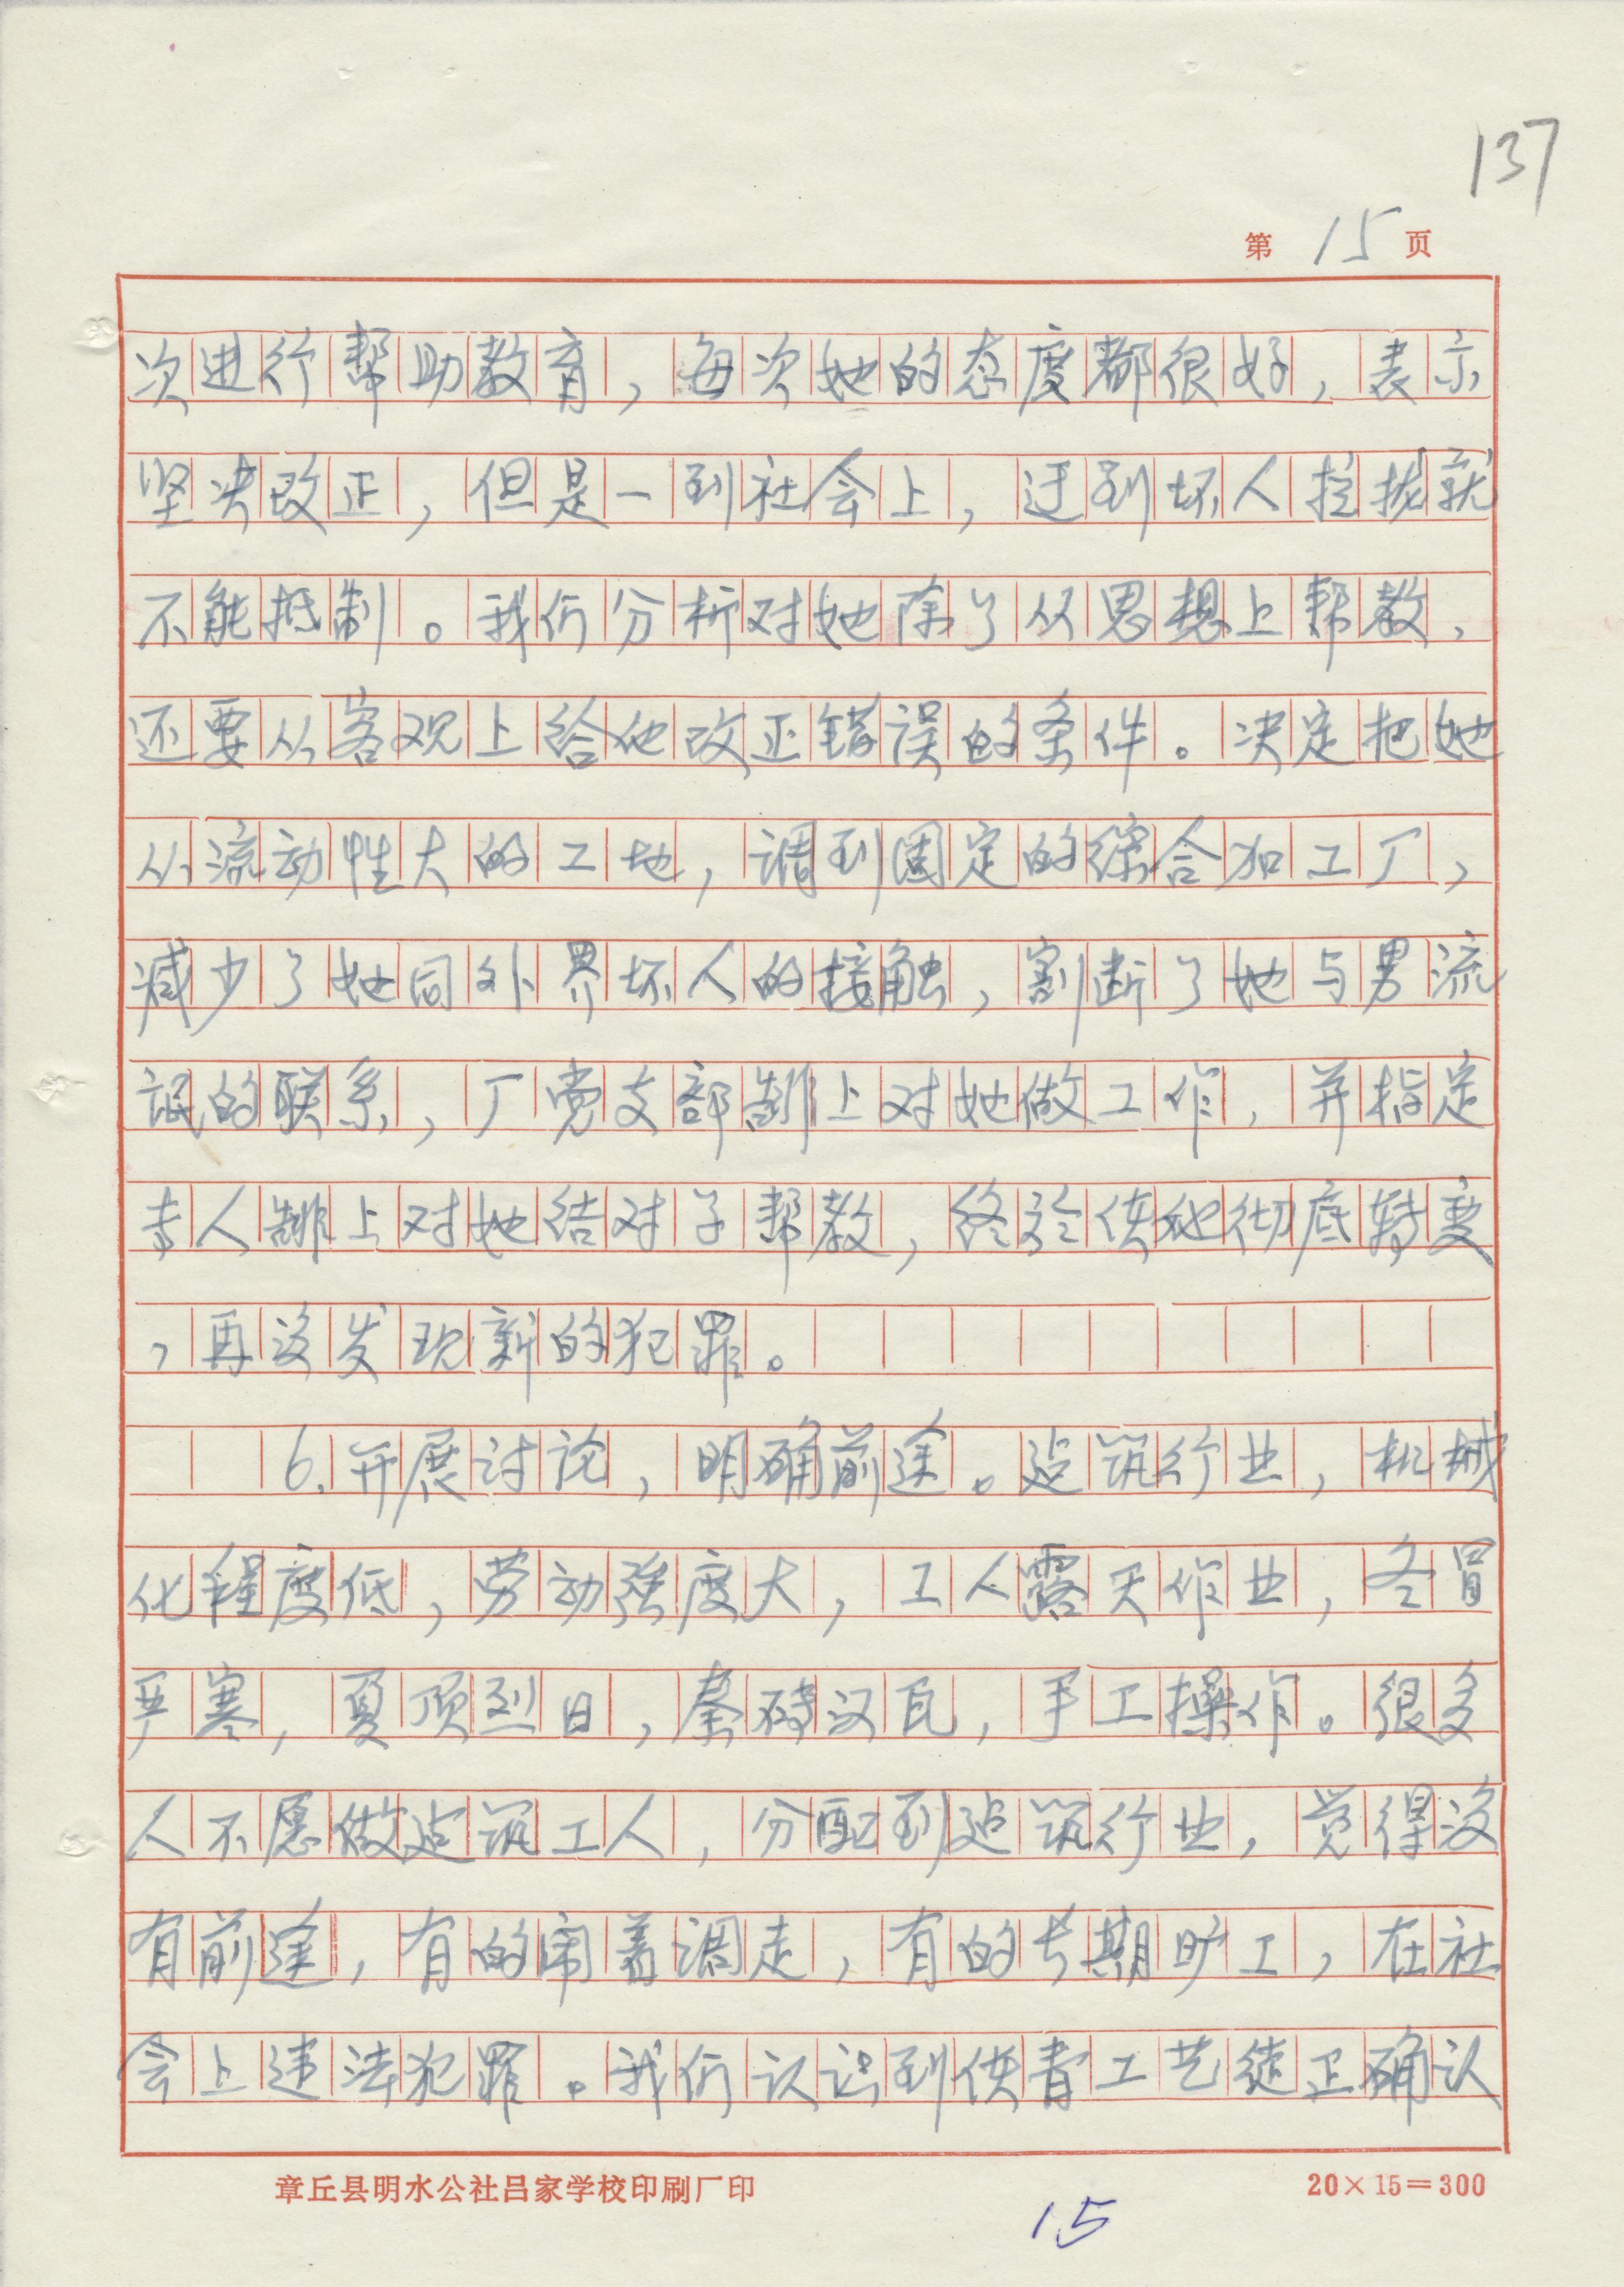 137
第 15 页
次进行帮助教育，每次她的态度都很好，表示
坚决改正，但是一到社会上，迂到坏人拉拢就
不能抵制。我们分析对她除了从思想上帮教，
还要从客观上给他改正错误的条件。决定把她
从流动性大的工地，调到固定的综合加工厂，
减少了她同外界坏人的接触，割断了她与男流
氓的联系，厂党支部制上对她做工作，并指定
专人制上对她结对子帮教，终於使她彻底转变
，再没发现新的犯罪。
6.开展讨论，明确前途。建筑行业，机械
化程度低，劳动强度大，工人露天作业，冬冒
严寒，夏顶烈日，秦砖汉瓦，手工操作。很多
人不愿做建筑工人，分配到建筑行业，觉得没
有前途，有的闹着调走，有的长期旷工，在社
会上违法犯罪。我们认识到使青工艺徒正确认
章丘县明水公社吕家学校印刷厂印 20×15=300
15